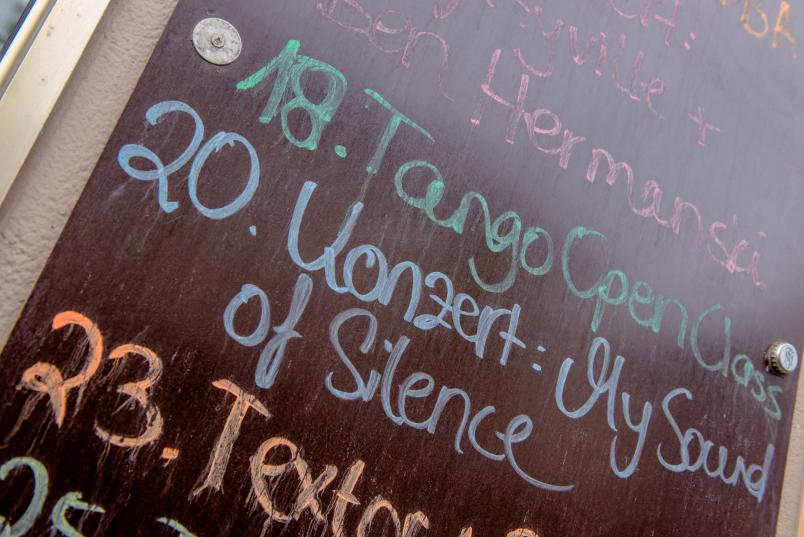 Ben Hermanski
18. Tango Open Class
20. Konzert: My Sound
of Silence
23. Textor